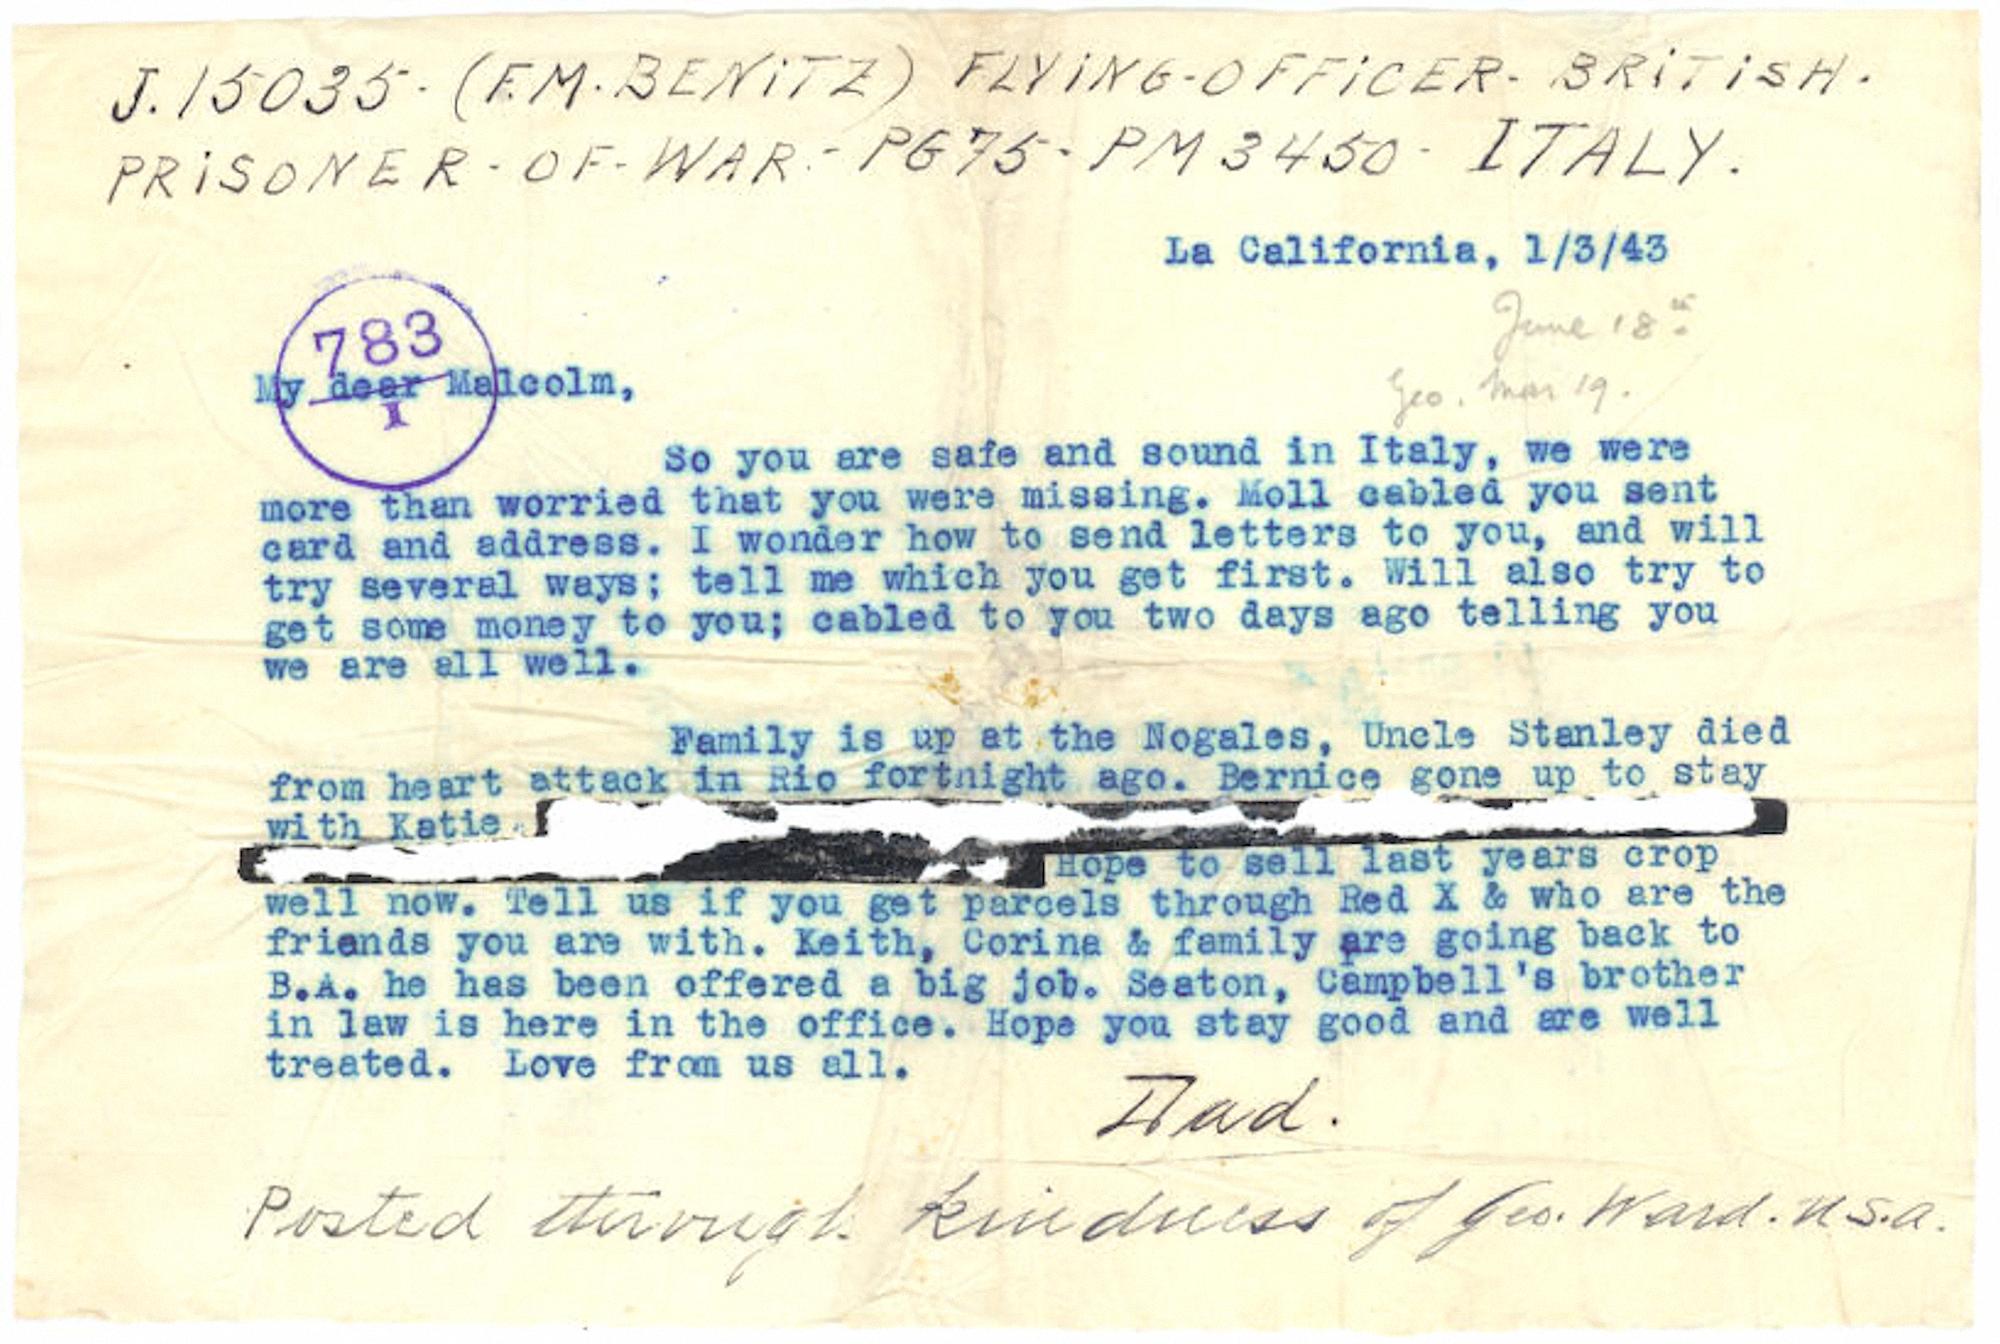 J.15035-(F.M.BENiTZ) FLYiNG-OFFiCER- BRiTiSH.
PRiSONER-OF-WAR.- PG75- PM 3450- ITALY.
La California, 1/3/43
June 18th
Geo. Mar 19.
783
I
My dear Malcolm,
So you are safe and sound in Italy, we were
more than worried that you were missing. Moll cabled you sent
card and address. I wonder how to send letters to you, and will
try several ways; tell me which you get first. Will also try to
get some money to you; cabled to you two days ago telling you
we are all well.
Family is up at the Nogales, Uncle Stanley died
from heart attack in Rio fortnight ago. Bernice gone up to stay
with Katie.
Hope to sell last years crop
well now. Tell us if you get parcels through Red X & who are the
friends you are with. Keith, Corina & family are going back to
B.A. he has been offered a big job. Seaton, Campbell's brother
in law is here in the office. Hope you stay good and are well
treated. Love from us all.
Dad.
Posted through kindness of Geo. Ward. U.S.A.